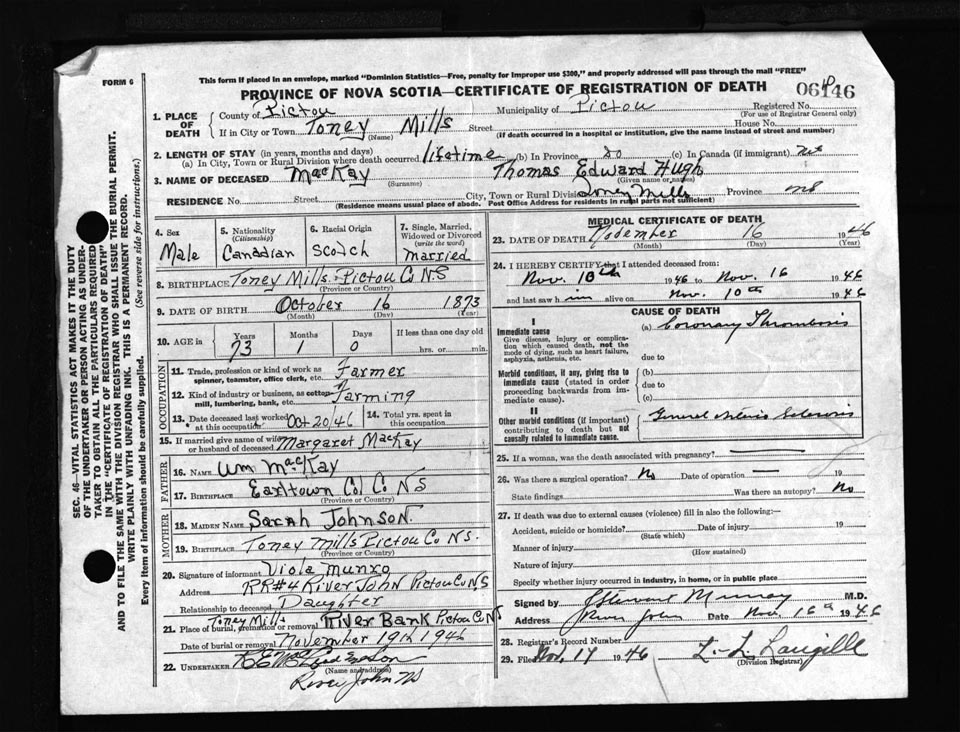 FORM 6
This form if placed in an envelope, marked "Dominion Statistics—Free, penalty for improper use $300," and properly addressed will pass through the mail "FREE"
PROVINCE OF NOVA SCOTIA—CERTIFICATE OF REGISTRATION OF DEATH
1. PLACE OF DEATH
County of Pictou Municipality of Pictou Registered No.
(For use of Registrar General only)
If in City or Town Toney Mills Street House No.
(Name) (If death occurred in a hospital or institution, give the name instead of street and number)
2. LENGTH OF STAY (in years, months and days)
(a) In City, Town or Rural Division where death occurred lifetime (b) In Province do (c) In Canada (if immigrant)
3. NAME OF DECEASED MacKay Thomas Edward Hugh
(Surname) (Given name or names)
RESIDENCE No. Street City, Town or Rural Division Toney Mills Province NS
(Residence means usual place of abode. Post Office Address for residents in rural parts not sufficient)
4. Sex Male
5. Nationality (Citizenship) Canadian
6. Racial Origin Scotch
7. Single, Married, Widowed or Divorced (write the word) married
8. BIRTHPLACE Toney Mills Pictou Co NS
(Province or Country)
9. DATE OF BIRTH October 16 1873
(Month) (Day) (Year)
10. AGE in Years Months Days If less than one day old
73 1 0 hrs. or min.
OCCUPATION
11. Trade, profession or kind of work as spinner, teamster, office clerk, etc. Farmer
12. Kind of industry or business, as cotton mill, lumbering, bank, etc. Farming
13. Date deceased last worked at this occupation Oct 20/46 14. Total yrs. spent in this occupation
15. If married give name of wife or husband of deceased Margaret MacKay
FATHER
16. NAME Wm MacKay
17. BIRTHPLACE Earltown Col. Co NS
(Province or Country)
MOTHER
18. MAIDEN NAME Sarah Johnson.
19. BIRTHPLACE Toney Mills Pictou Co NS.
(Province or Country)
20. Signature of informant Viola Munro
Address RR#4 River John Pictou Co NS
Relationship to deceased Daughter
21. Place of burial, cremation or removal Toney Mills River Bank Pictou Co NS
Date of burial or removal November 19th 1946
22. UNDERTAKER
(Name and address)
River John NS
MEDICAL CERTIFICATE OF DEATH
23. DATE OF DEATH November 16 1946
(Month) (Day) (Year)
24. I HEREBY CERTIFY that I attended deceased from:
Nov. 10th 1946 to Nov. 16 1946
and last saw him alive on Nov. 10th 1946
CAUSE OF DEATH
I
Immediate cause (a) Coronary Thrombosis
Give disease, injury or complication which caused death, not the mode of dying, such as heart failure, asphyxia, asthenia, etc.
due to
Morbid conditions, if any, giving rise to immediate cause (stated in order proceeding backwards from immediate cause).
(b)
due to
(c)
II
Other morbid conditions (if important) contributing to death but not causally related to immediate cause.
General
25. If a woman, was the death associated with pregnancy?
26. Was there a surgical operation? No Date of operation — 19
State findings Was there an autopsy? No
27. If death was due to external causes (violence) fill in also the following:—
Accident, suicide or homicide? Date of injury 19
(State which)
Manner of injury
(How sustained)
Nature of injury
Specify whether injury occurred in industry, in home, or in public place
Signed by Stewart Murray M.D.
Address River John Date Nov. 16th 1946
28. Registrar's Record Number
29. Filed Nov. 19 1946 L. L. Langille
(Division Registrar)
SEC. 46—VITAL STATISTICS ACT MAKES IT THE DUTY
OF THE UNDERTAKER OR PERSON ACTING AS UNDER-
TAKER TO OBTAIN ALL THE PARTICULARS REQUIRED
IN THE "CERTIFICATE OF REGISTRATION OF DEATH"
AND TO FILE THE SAME WITH THE DIVISION REGISTRAR WHO SHALL ISSUE THE BURIAL PERMIT.
WRITE PLAINLY WITH UNFADING INK. THIS IS A PERMANENT RECORD.
Every item of information should be carefully supplied. (See reverse side for instructions.)